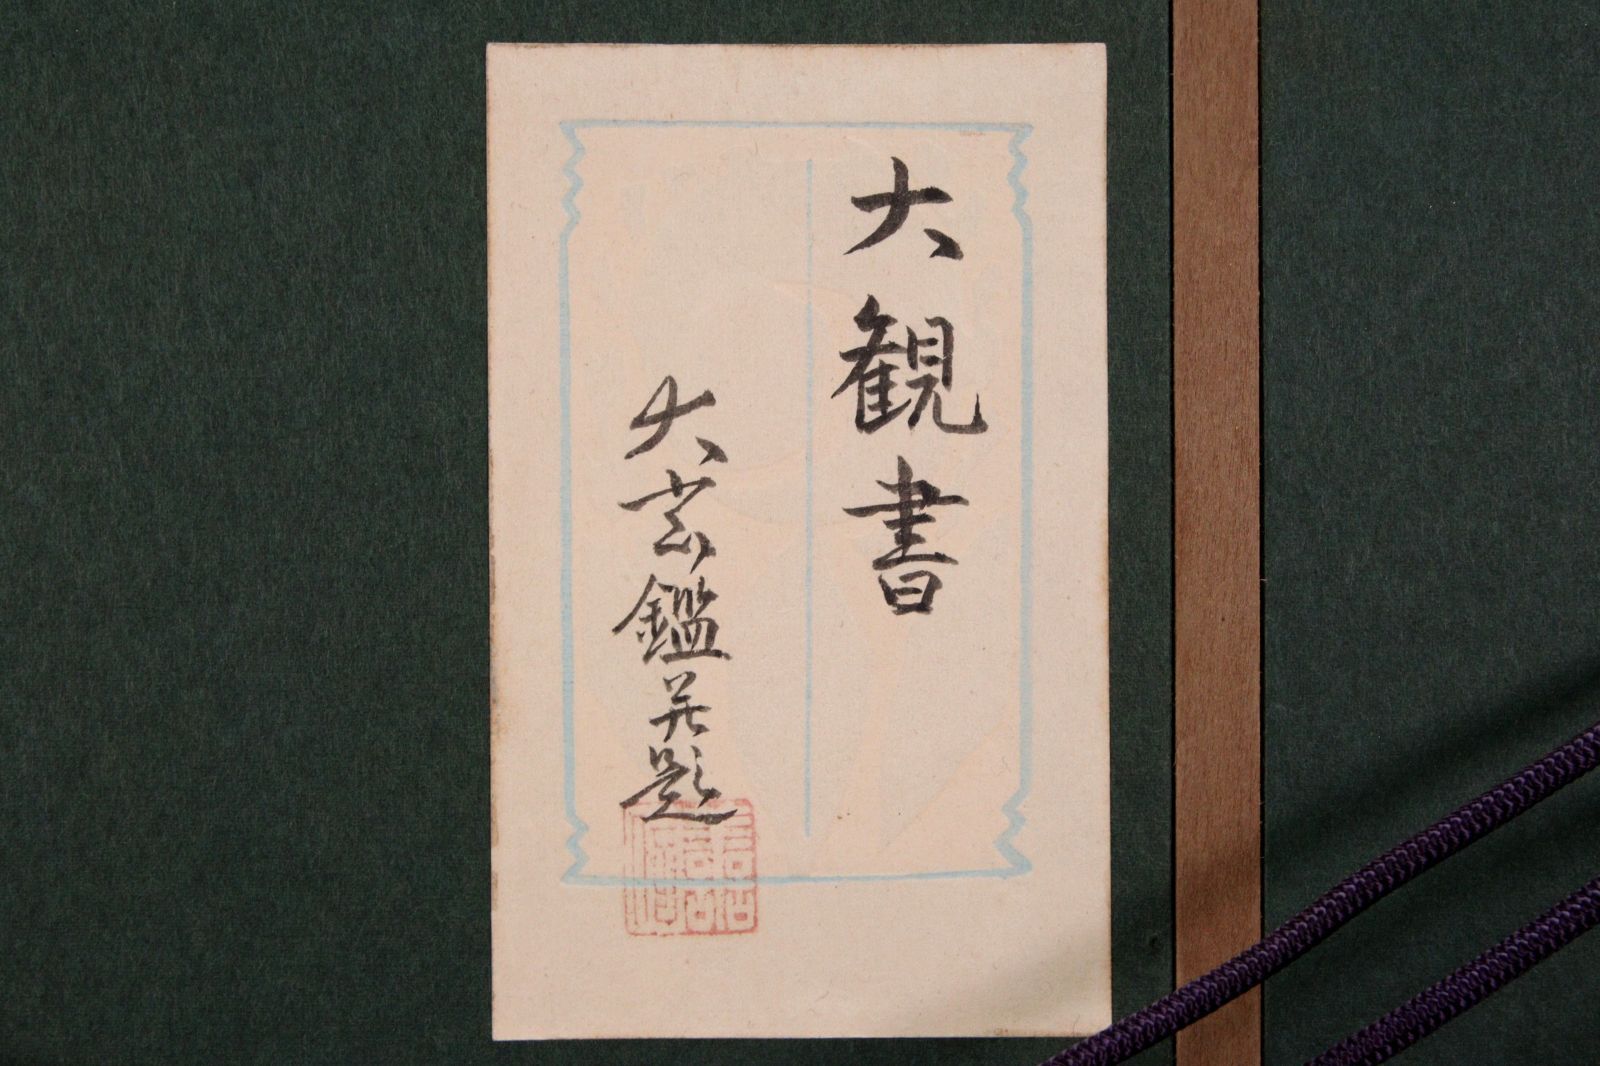 大観書
大雲鑑并題